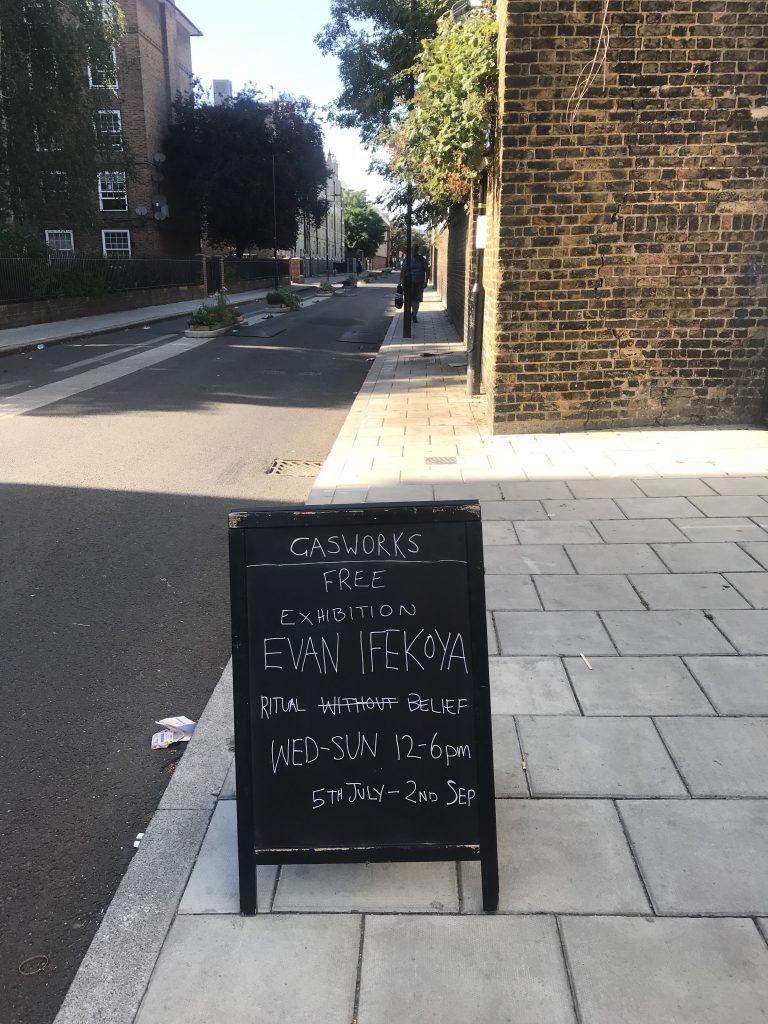 GASWORKS
FREE
EXHIBITION
EVAN IFEKOYA
RITUAL WITHOUT BELIEF
WED-SUN 12-6pm
5TH JULY - 2ND SEP